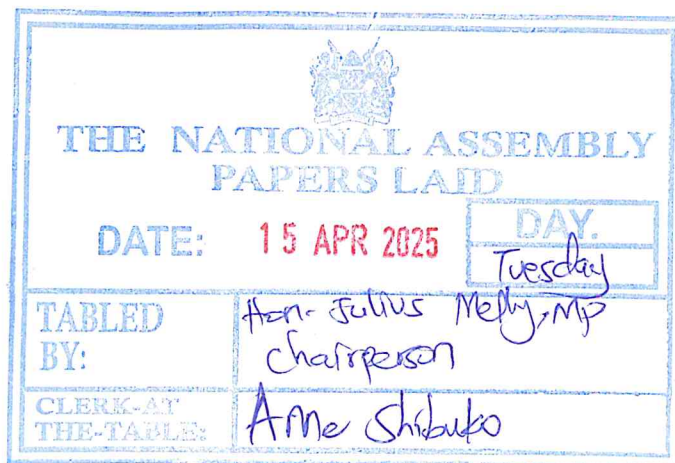 THE NATIONAL ASSEMBLY
PAPERS LAID
DATE: 15 APR 2025
DAY.
Tuesday
TABLED BY:
Hon. Julius Melly, MP
Chairperson
CLERK-AT THE-TABLE:
Anne Shibuko